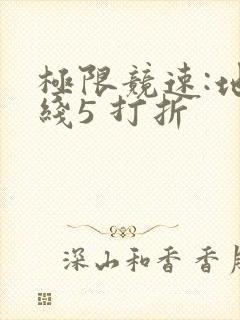 極限競速:地
綫5 打折
深山和香香